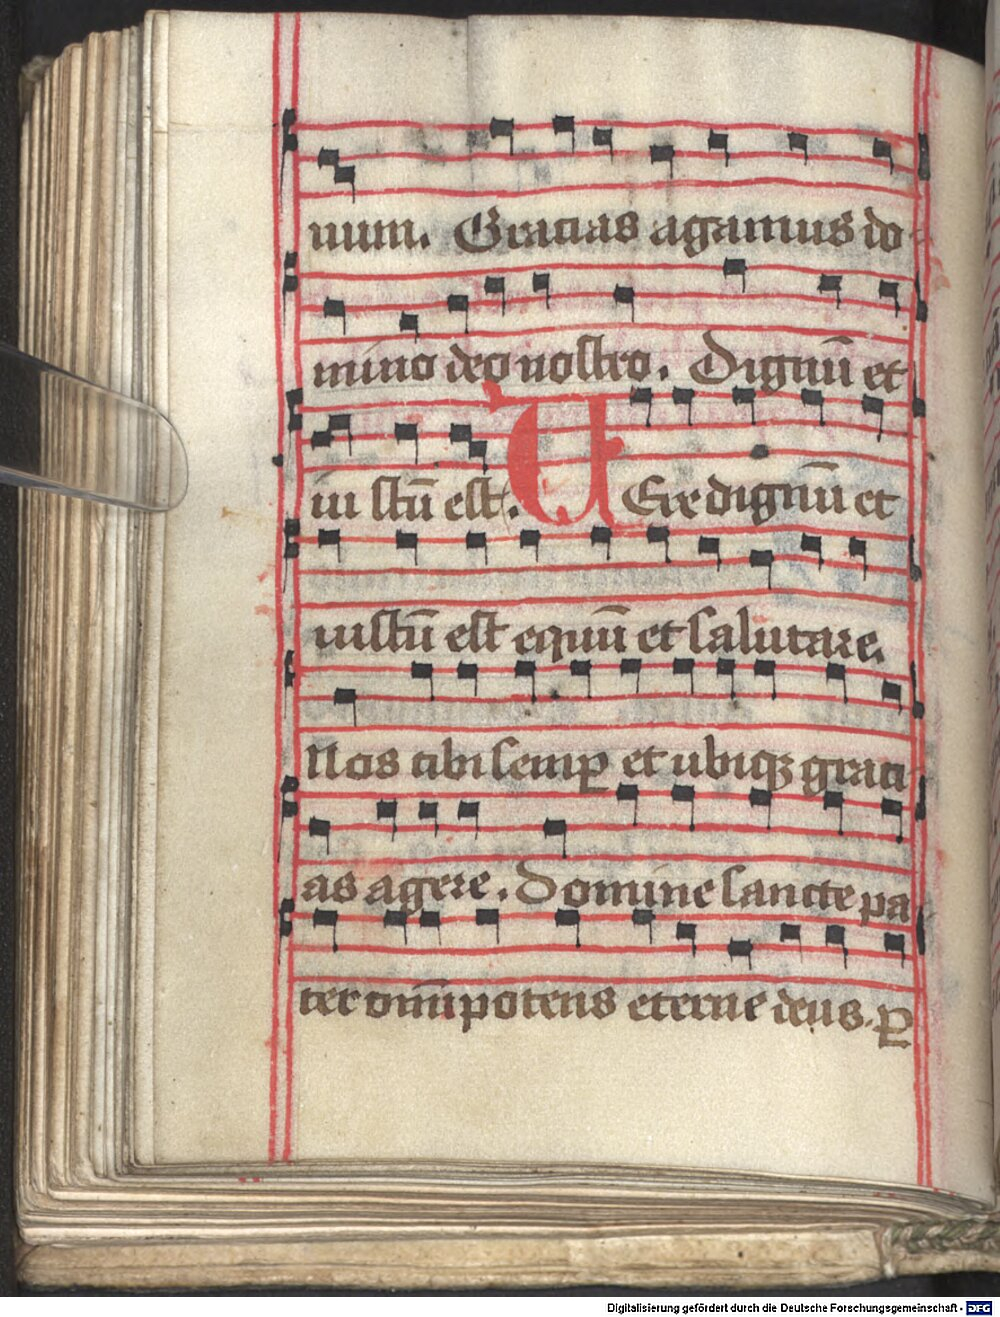 num. Gracias agamus do-
mino deo nostro. Dignū et
iu stū est. VEre dignū et
iustū est equū et salutare.
Nos tibi semꝑ et ubiqꝫ graci-
as agere. Domine sancte pa
ter om̄ipotens eterne deus. ꝑ
Digitalisierung gefördert durch die Deutsche Forschungsgemeinschaft - DFG